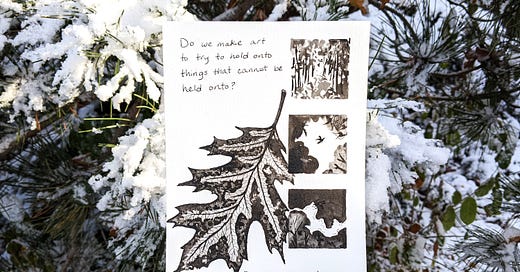 Do we make art
to try to hold onto
things that cannot be
held onto?